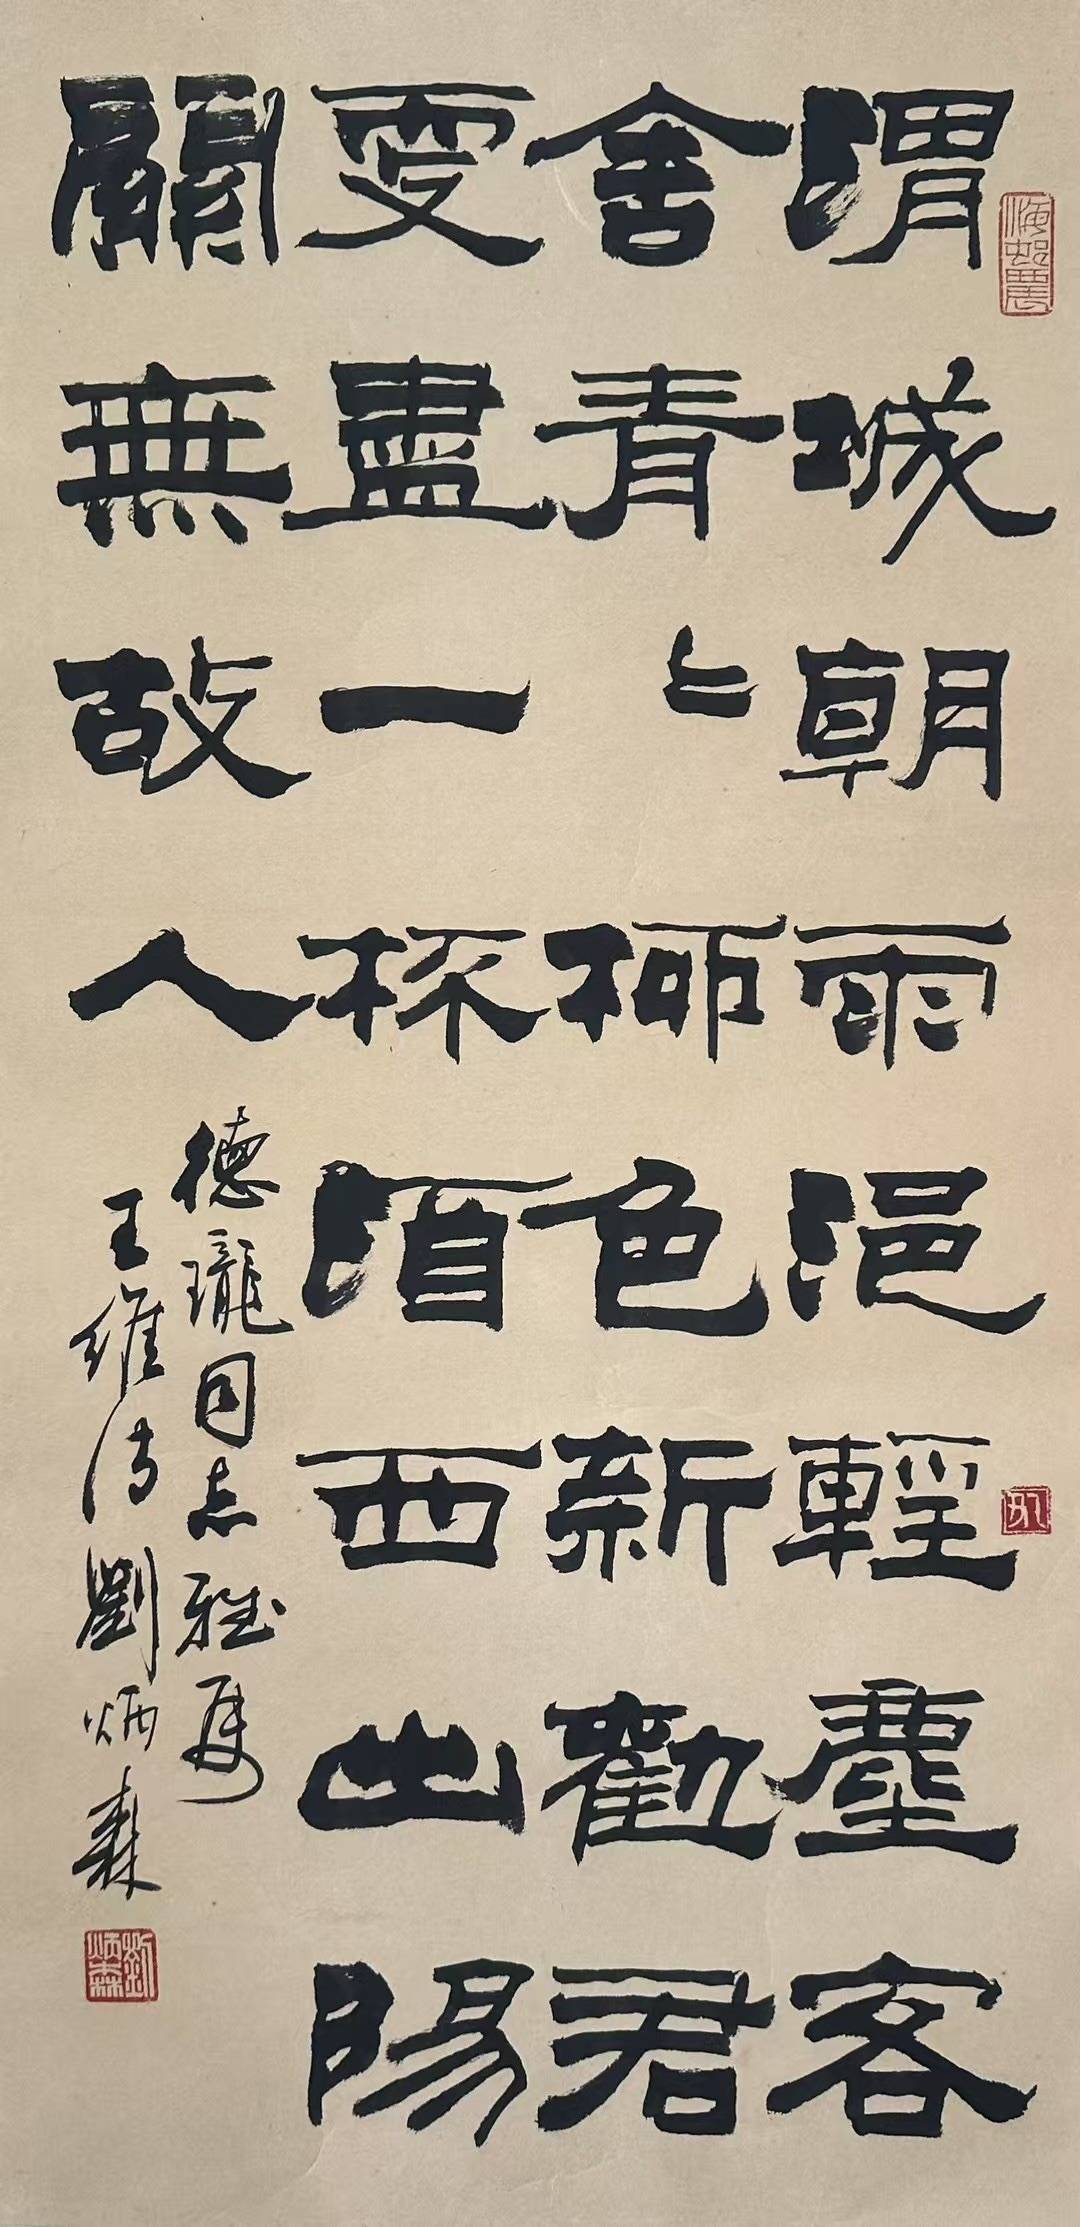 渭城朝雨浥輕塵客
舍青〻柳色新勸君
更盡一杯西出陽
關無故人
德瓏同志雅屬
王維詩劉炳森
海村農
劉炳森